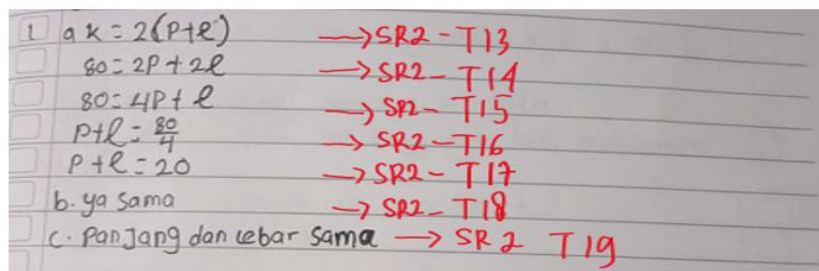 1 a k = 2(p+l) → SR2 - T13
80 = 2p + 2l → SR2 - T14
80 = 4p + l → SR2 - T15
p+l = 80/4 → SR2 - T16
p+l = 20 → SR2 - T17
b. ya sama → SR2 - T18
c. Panjang dan lebar sama → SR2 T19